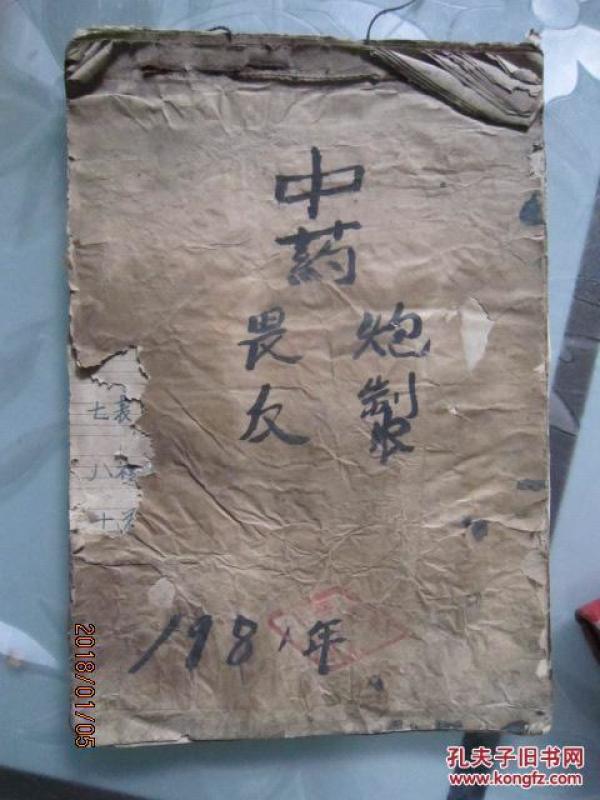 中药
炮製
畏反
七表
八裡
十
1981年
2018/01/05
孔夫子旧书网
www.kongfz.com